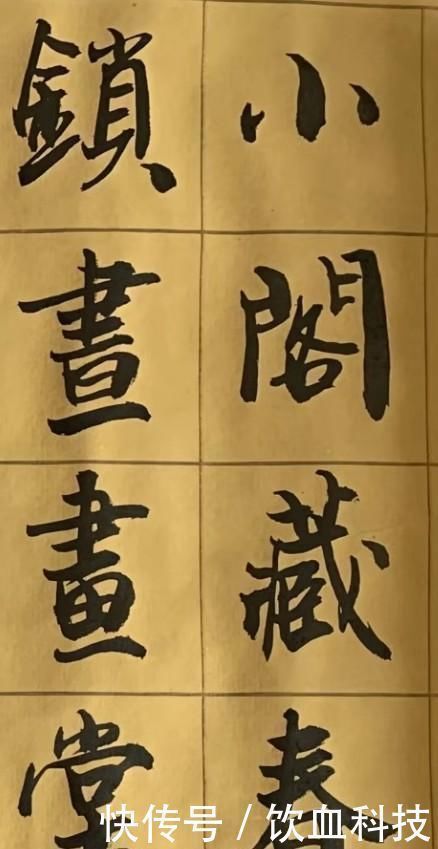 小閣藏春
鎖晝畫堂
快传号 / 饮血科技